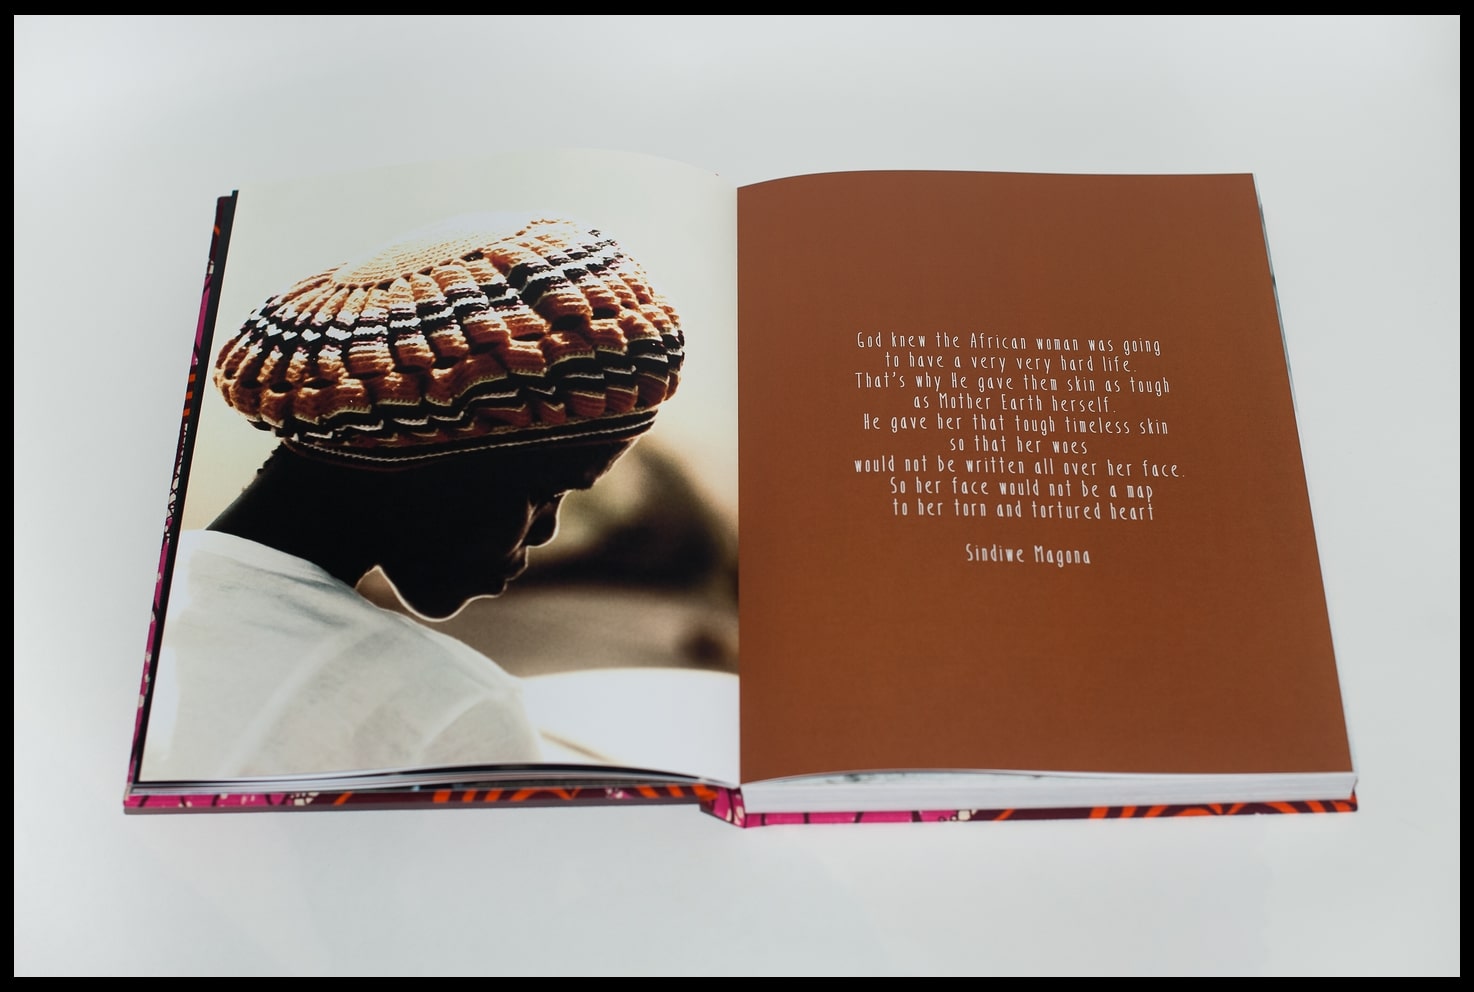 God knew the African woman was going
to have a very very hard life.
That's why He gave them skin as tough
as Mother Earth herself.
He gave her that tough timeless skin
so that her woes
would not be written all over her face.
So her face would not be a map
to her torn and tortured heart
Sindiwe Magona